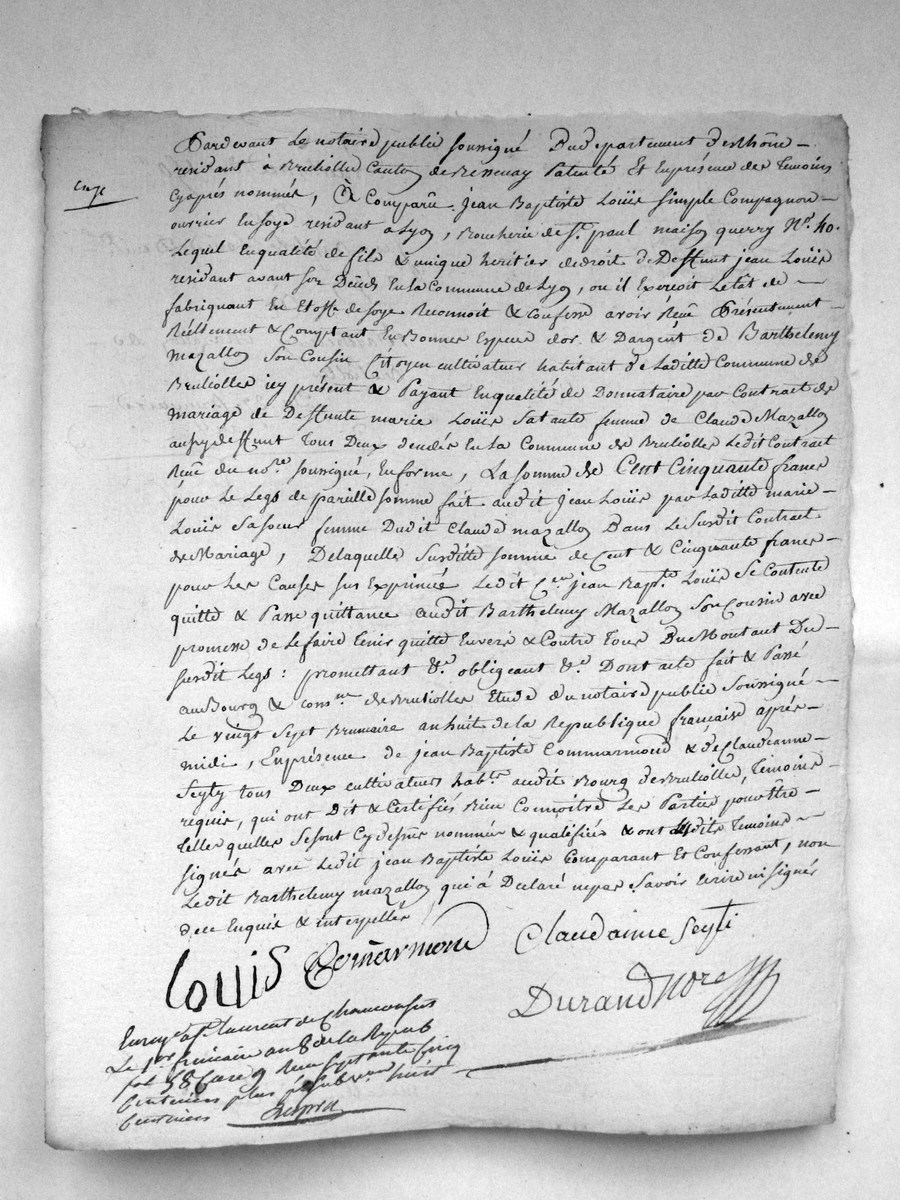 Pardevant Le notaire public soussigné Du departement du Rhône
residant à Brulliolle Canton de Bessenay Patenté Et En présence des Temoins
Enrg
Cyaprés nommés, à Comparû Jean Baptiste Loüis simple Compagnon
ouvrier En soye residant à Lyon, Boucherie de St. paul maison querry No. 40.
Lequel En qualité de fils & unique heritier de droit de Deffunt jean Loüis
residant avant son Décès En La Commune de Lyon, ou il Exercoit L'état de
fabriquant En Etoffe de soye Reconnoit & Confesse avoir Reçû Présentement
Réellement & Comptant En Bonnes Especes d'or & D'argent de Barthelemy
Mazallon son Cousin Citoyen cultivateur habitant de Laditte Commune de
Brulliolles icy présent & Payant En qualité de Donnataire par Contract de
mariage de Deffunte marie Loüis sa tante femme de Claude Mazallon
aussy deffunt Tous Deux decedés En La Commune de Brulliolles Ledit Contract
Reçû du nore. soussigné, En forme, La somme de Cent Cinquante francs
pour Le Legs de pareille somme fait audit Jean Loüis par Laditte marie
Loüis sa soeur femme Dudit Claude mazallon Dans Le susdit Contract
de Mariage, De laquelle susditte somme de Cent & Cinquante francs
pour Les Causes sus Exprimées Ledit Cen. jean Bapte. Loüis se Contente
quitte & Passe quittance audit Barthelemy Mazallon son Cousin avec
promesse de Le faire tenir quitte Envers & Contre Tous Du Montant Du
susdit Legs : promettant &a. obligeant &a. Dont acte fait & Passé
au Bourg & Comne de Brulliolles Etude du notaire public soussigné
Le vingt sept Brumaire an huit de La Republique française après
midi, En présence de jean Baptiste Commarmond & de Claudeanne
Seyty tous Deux cultivateurs habts. audit Bourg de Brulliolle, Temoins
requis, qui ont Dit & Certifiés Bien Connoitre Les Parties pour Être
Telles qu'elles se sont Cy dessus nommées & qualifiées & ont lesdits Temoins
signés avec Ledit jean Baptiste Loüis Comparant Et Confessant, non
Ledit Barthelemy mazallon qui à Declaré ne pas savoir écrire ni signer
de ce Enquis & interpellés
Louis Comarmond Claudainne Seyti
Durand Nore
Enrgé à St. Laurent de Chamousset
Le 1er frimaire an 8 de La Repub
fol 58 Care 9 Reçu Septante Cinq
Centimes plus pr. Subvon huit
Centimes